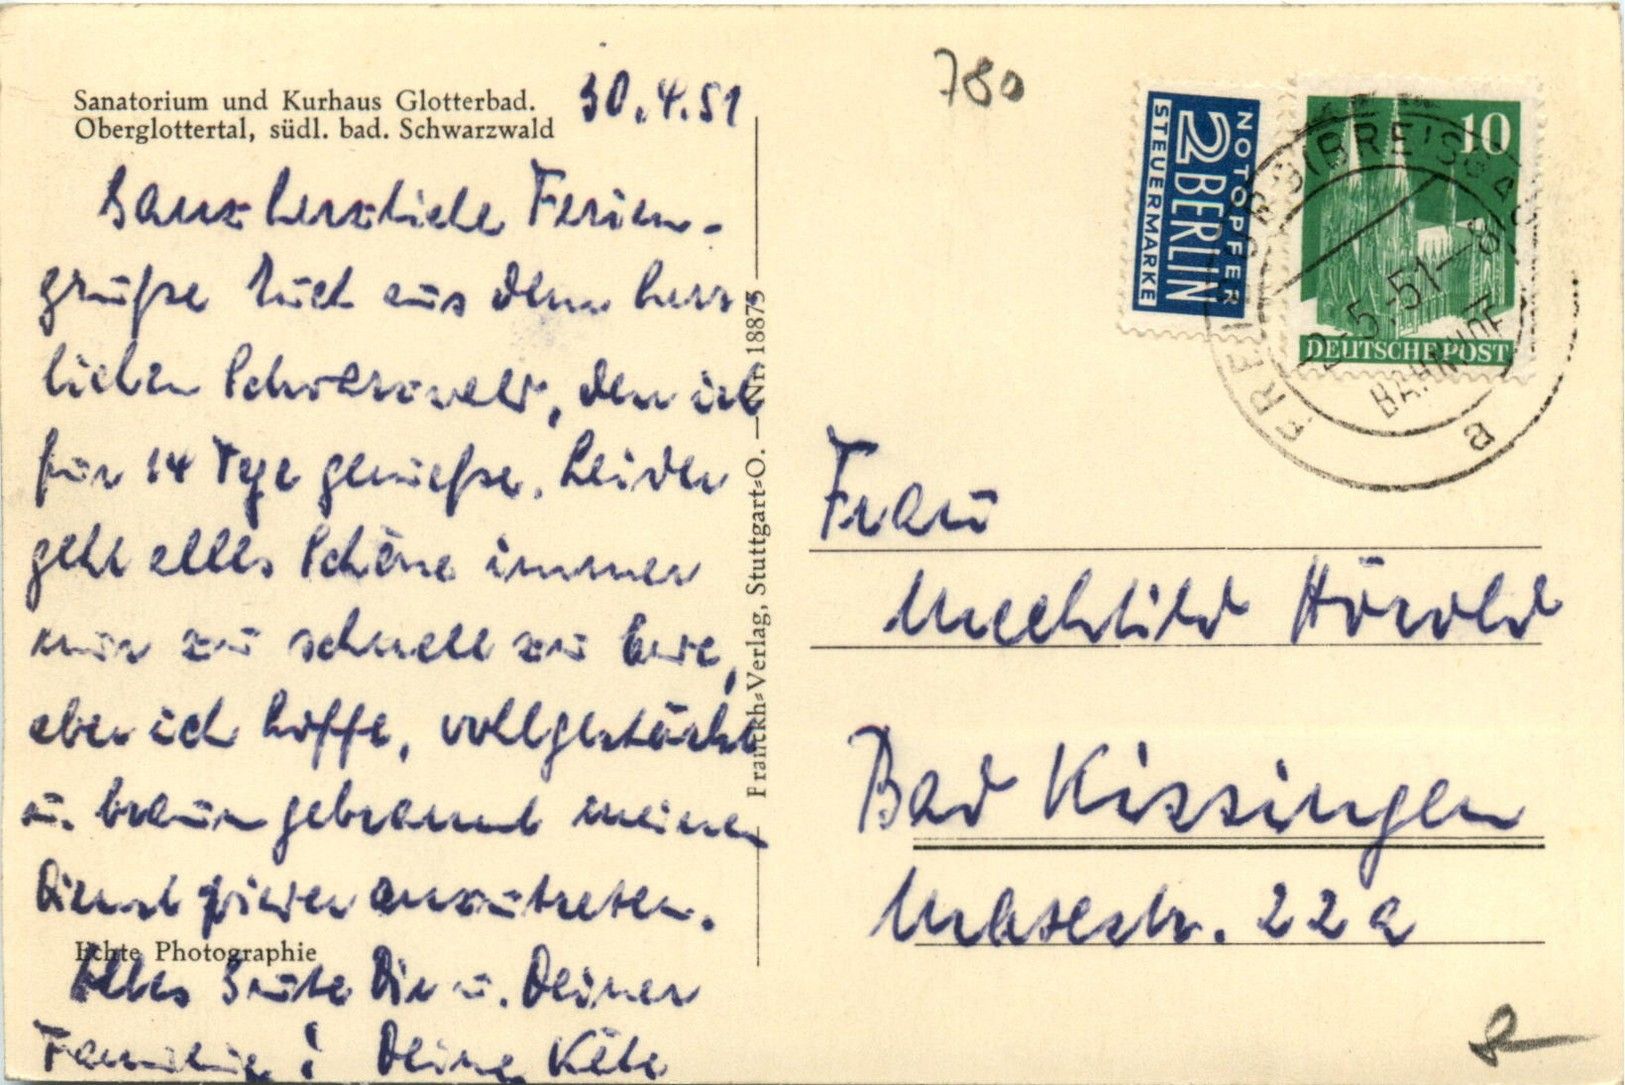 Sanatorium und Kurhaus Glotterbad.
Oberglottertal, südl. bad. Schwarzwald
30.4.51
Ganz herzliche Ferien-
grüße Euch aus dem herr
lichen Schwarzwald, den ich
für 14 Tage genieße. Leider
geht alles Schöne immer
nur zu schnell zu Ende,
aber ich hoffe, vollgestärkt
u. braungebrannt meinen
Dienst wieder anzutreten.
Echte Photographie
Alles Gute Dir u. Deiner
Familie! Deine Käte
Franckh-Verlag, Stuttgart-O. — Nr. 18873
780
NOTOPFER
2 BERLIN
STEUERMARKE
10
DEUTSCHE POST
FREIBURG (BREISGAU)
2.5.51—8
BAHNHOF
B
Frau
Mechtild Hörold
Bad Kissingen
22a